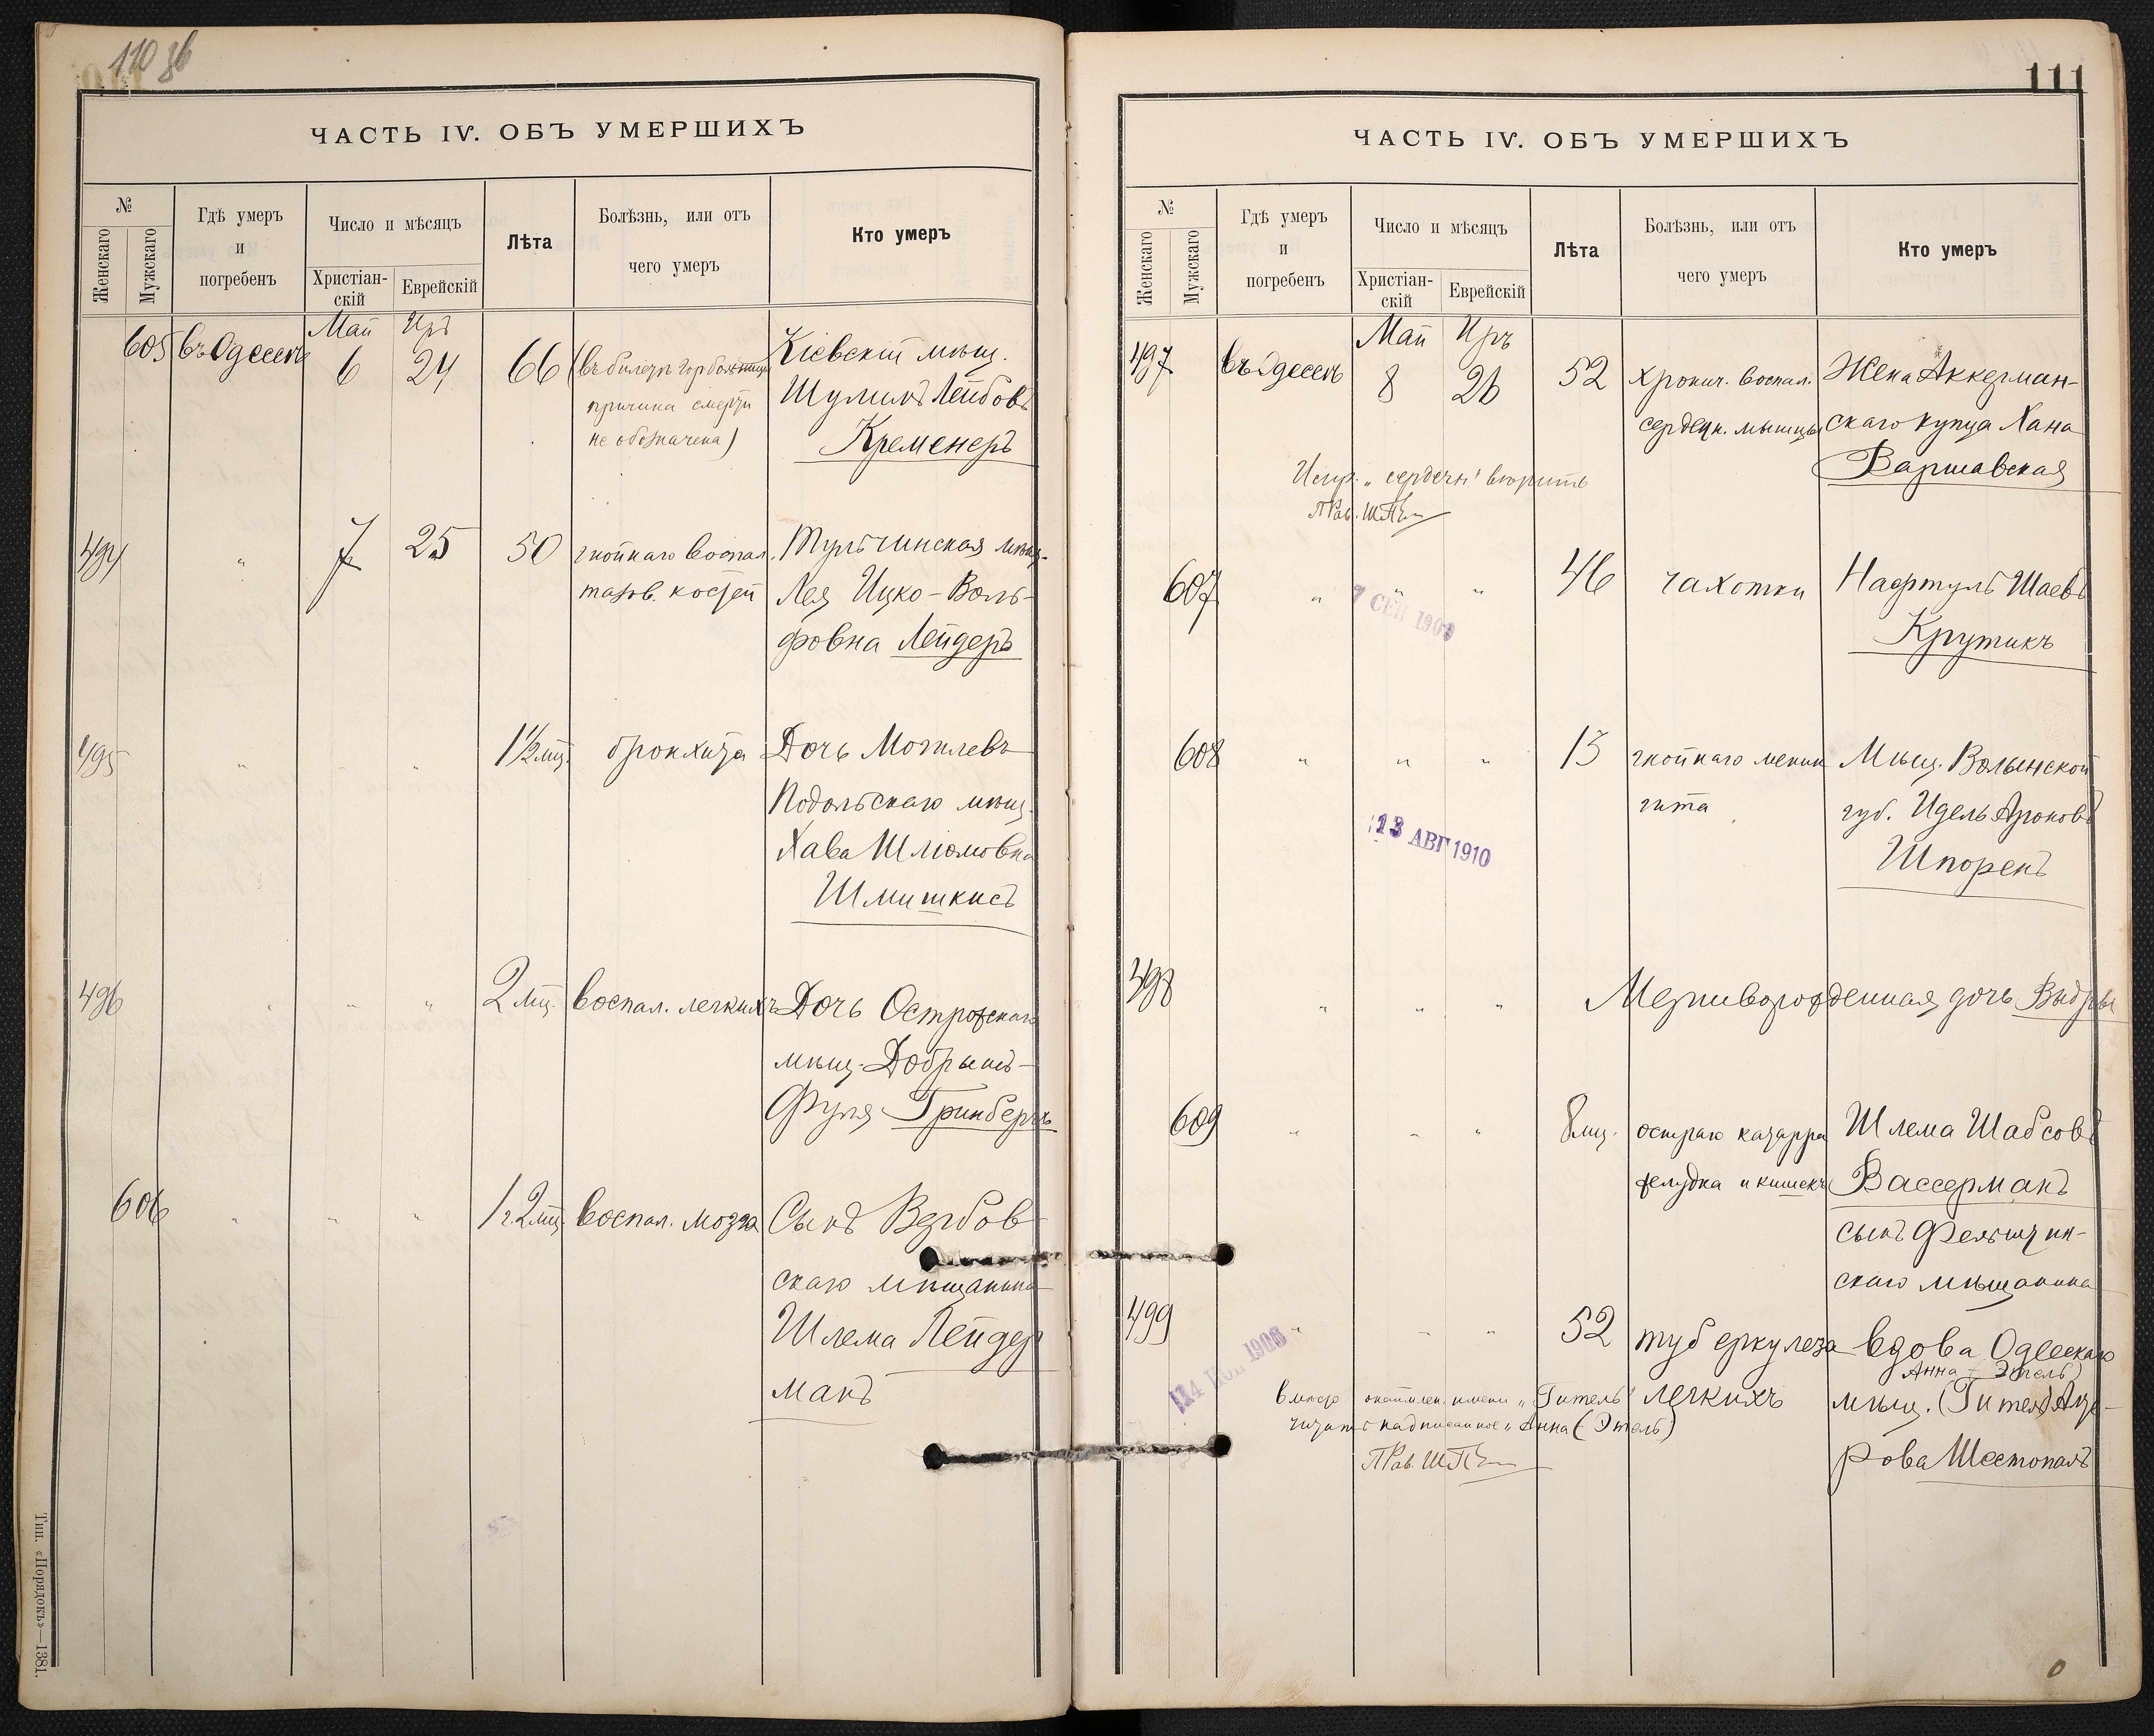 110 зв
ЧАСТЬ IV. ОБЪ УМЕРШИХЪ
№
Женскаго
Мужскаго
Гдѣ умеръ
и
погребенъ
Число и мѣсяцъ
Христіан-
скій
Еврейскій
Лѣта
Болѣзнь, или отъ
чего умеръ
Кто умеръ
Май Иръ
605 въ Одессѣ 6 24 66 (въ билетѣ гор больницы Кіевскій мѣщ.
причина смерти Шулимъ Лейбовъ
не обозначена) Кременеръ
494 " 7 25 50 гнойнаго воспал. Тульчинская мѣщ.
тазов. костей Лея Ицко-Воль-
фовна Лейдеръ
495 " " 1½ мц. бронхита Дочь Могилевъ
Подольскаго мѣщ.
Хава Шлюмовна
Шмишкисъ
496 " " " 2 мц. воспал. легкихъ Дочь Острожскаго
мѣщ. Добрышъ-
Фуля Гринбергъ
606 " " " 1 г. 2 мц. воспал. мозга Сынъ Вербов-
скаго мѣщанина
Шлема Лейдер
манъ
Тип. «Порядокъ»—1381.
111
ЧАСТЬ IV. ОБЪ УМЕРШИХЪ
№
Женскаго
Мужскаго
Гдѣ умеръ
и
погребенъ
Число и мѣсяцъ
Христіан-
скій
Еврейскій
Лѣта
Болѣзнь, или отъ
чего умеръ
Кто умеръ
Май Иръ
497 въ Одессѣ 8 26 52 хронич. воспал. Жена Аккерман-
сердечн. мышцы скаго купца Хана
Варшавская
Испр. „сердечн" вѣрить
Рав.
607 " " " 46 чахотки Нафтулъ Шаевъ
7 СЕН 1909
Крутикъ
608 " " " 13 гнойнаго менин Мѣщ. Волынской
гита губ. Идель Ароновъ
13 АВГ 1910
Шпоренъ
498 " " " Мертворожденная дочь Выдры
609 " " " 8 мц. остраго катарра Шлема Шабсовъ
желудка и кишекъ Вассерманъ
сынъ Фельштин-
скаго мѣщанина
499 " " " 52 туберкулеза вдова Одесскаго
Анна (Этель)
легкихъ мѣщ. (Гитель)
рова Шестопалъ
14 1906
вмѣсто имени „Гитель"
читать надписанное „Анна (Этель)
Рав.